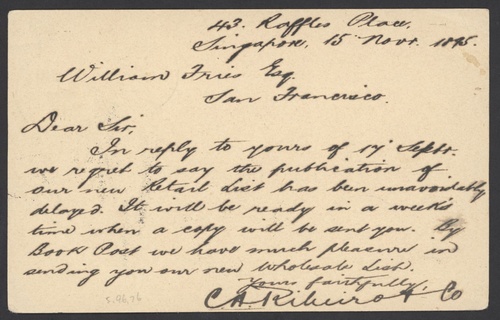 43. Raffles Place.
Singapore, 15 Novr. 1895.
William Fries Esq.
San Francisco.
Dear Sir,
In reply to yours of 17 Septr.
we regret to say the publication of
our new Retail List has been unavoidably
delayed. It will be ready in a week's
time when a copy will be sent you. By
Book Post we have much pleasure in
sending you our new Wholesale List.
Yours faithfully,
C A Ribeiro & Co